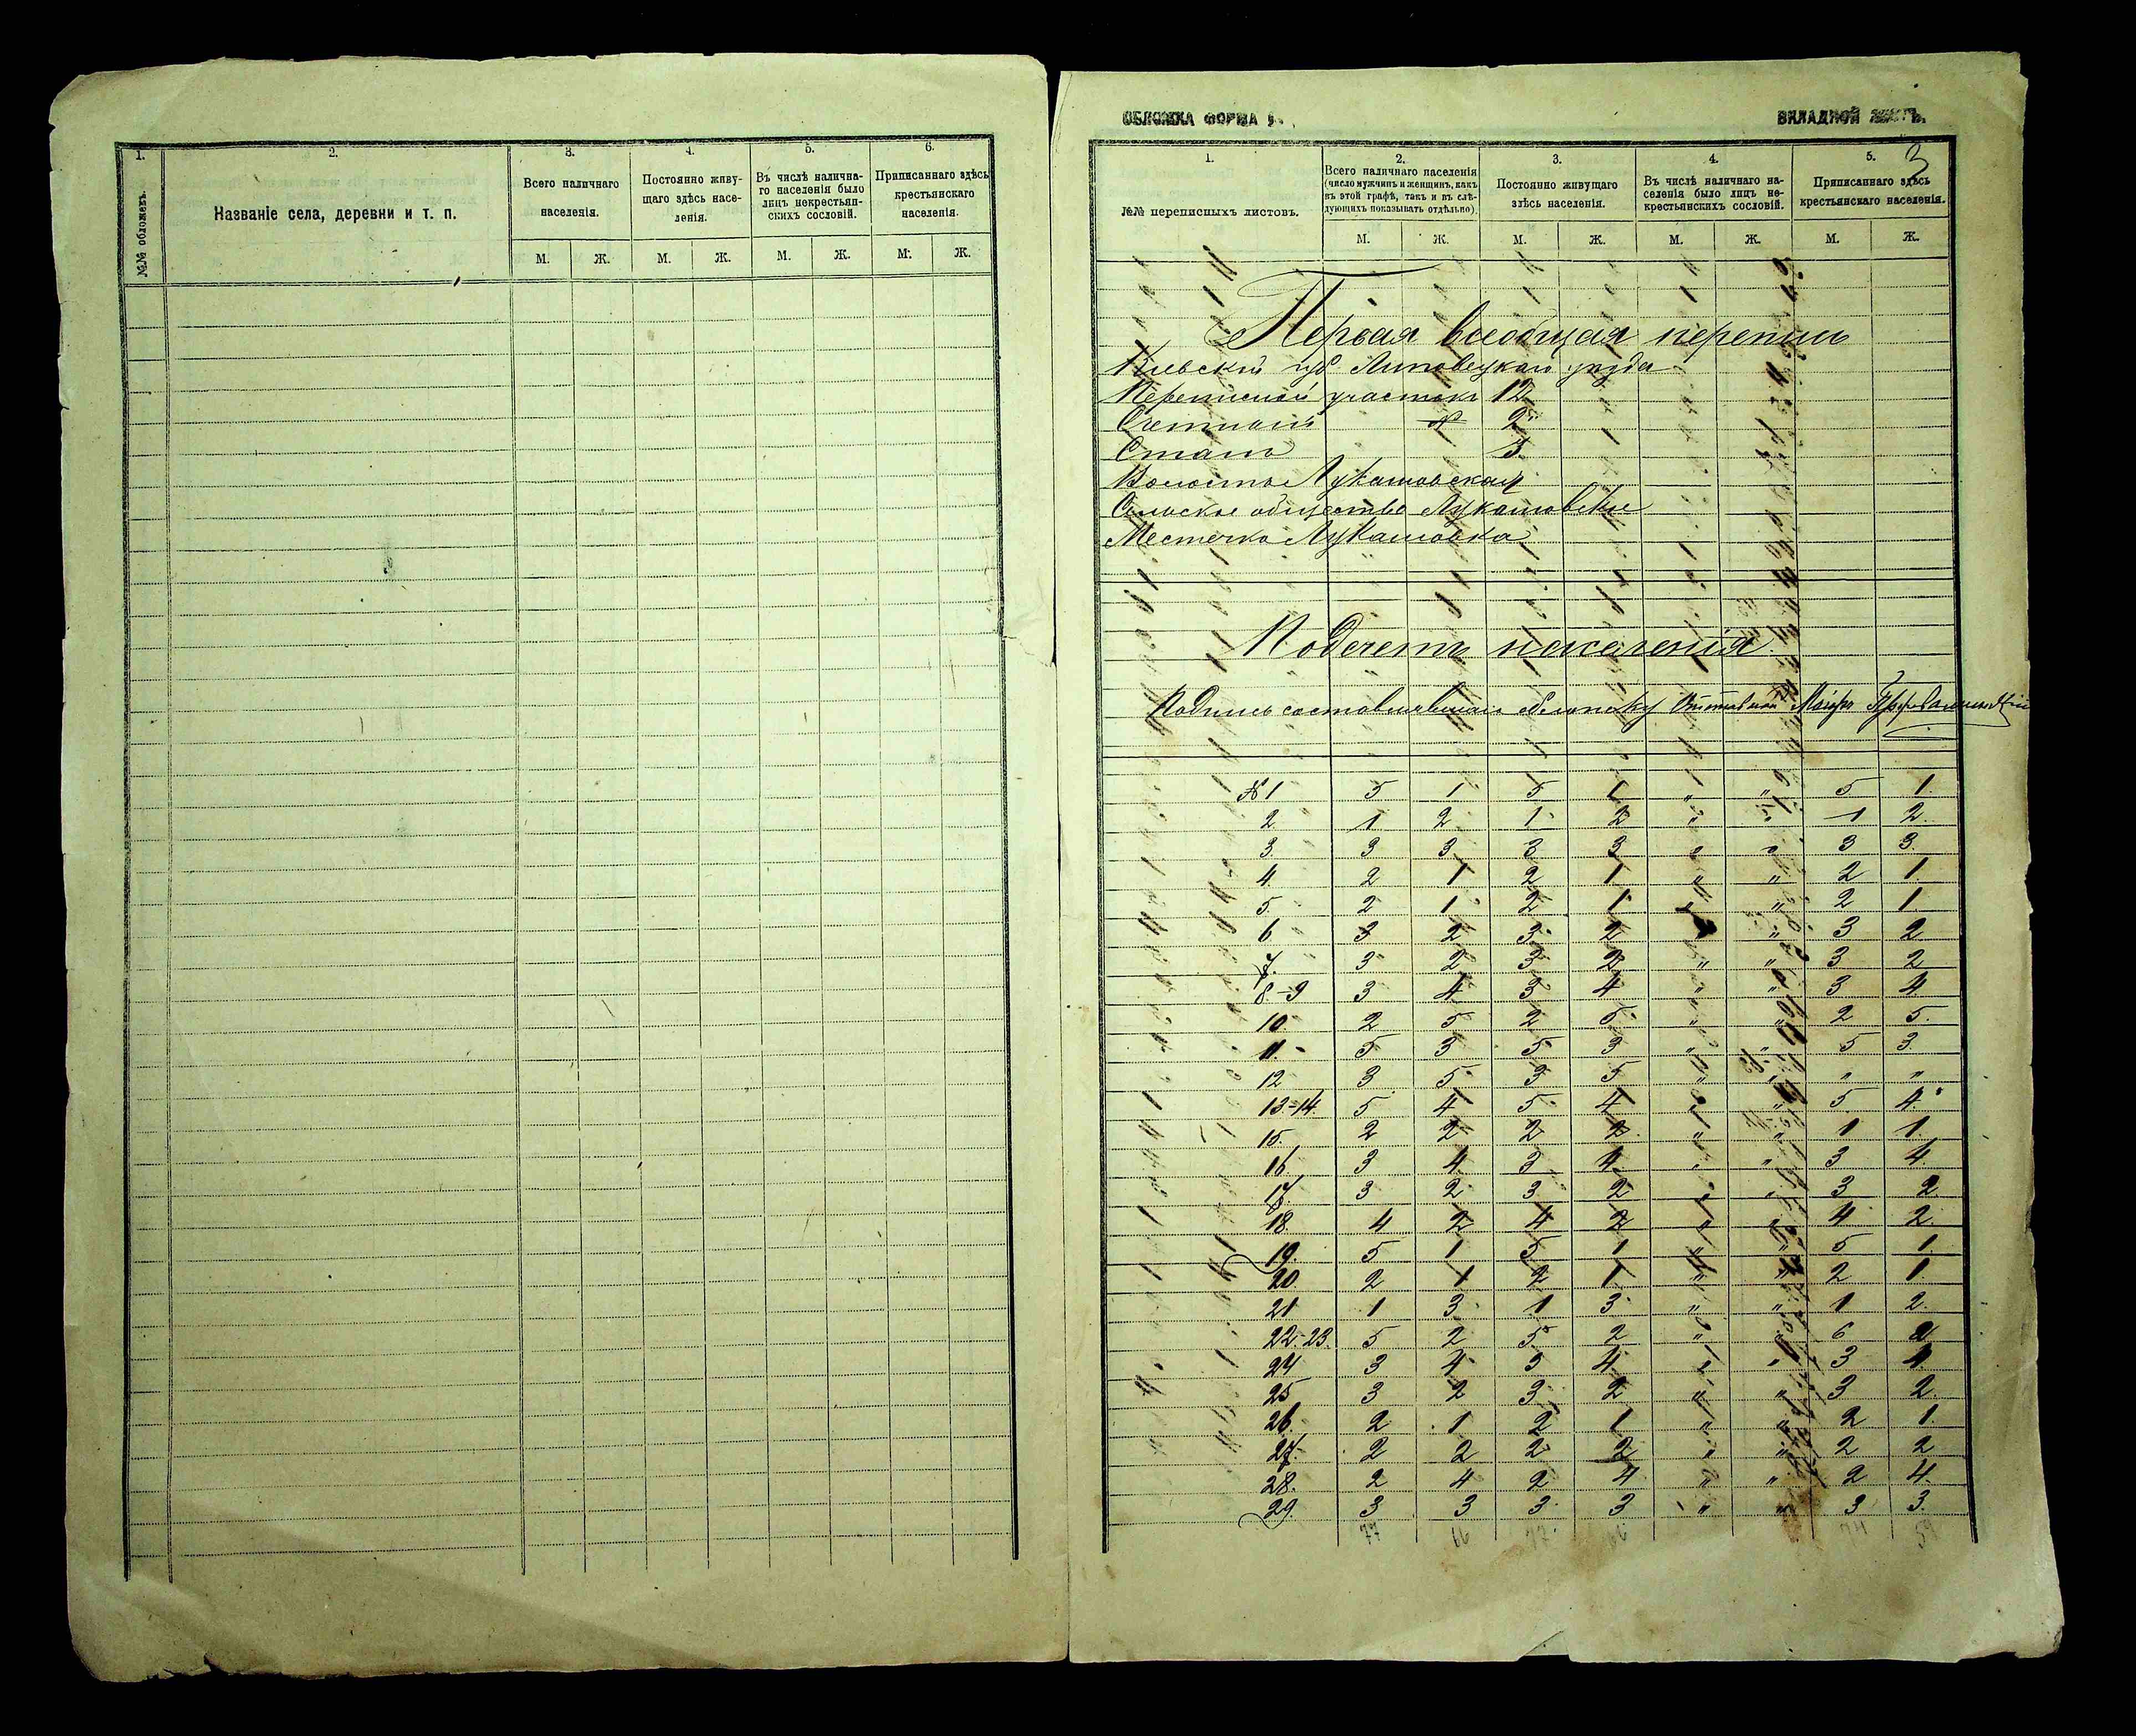 1.
2.
3.
4.
5.
6.
№№ обложекъ.
Названіе села, деревни и т. п.
Всего наличнаго населенія.
Постоянно живущаго здѣсь населенія.
Въ числѣ наличнаго населенія было лицъ некрестьянскихъ сословій.
Приписаннаго здѣсь крестьянскаго населенія.
М. Ж. М. Ж. М. Ж. М. Ж.
ОБЛОЖКА ФОРМА
ВКЛАДНОЙ
3
1. 2. 3. 4. 5.
№№ переписныхъ листовъ.
Всего наличнаго населенія
(число мужчинъ и женщинъ, какъ
въ этой графѣ, такъ и въ слѣ-
дующихъ показывать отдѣльно).
Постоянно живущаго
здѣсь населенія.
Въ числѣ наличнаго на-
селенія было лицъ не-
крестьянскихъ сословій.
Приписаннаго здѣсь
крестьянскаго населенія.
М. Ж. М. Ж. М. Ж. М. Ж.
Первая всеобщая перепись
Кіевской губ Липовецкаго уѣзда
Переписной участокъ 12
Счетный № 2
Станъ 3.
Волость Лукашовская
Сельское общество Лукашовское
Местечко Лукашовка
Подсчетъ населенія
Подпись составлявшаго обложку Отставной Маіоръ
№ 1 5 1 5 1 " " 5 1.
2 1 2 1 2 " " 1 2.
3. 3 3 3 3 " " 3 3.
4. 2 1 2 1 " " 2 1.
5. 2 1 2 1 " 2 1
6 3 2 3 2 " 3 2
7. 3 2 3 2 " " 3 2
8-9 3 4 3 4 " " 3 4
10 2 5 2 5 " " 2 5.
11. 5 3 5 3 " " 5 3.
12 3 5 3 5 " " " "
13-14. 5 4 5 4 " " 5 4.
15. 2 2 2 2 " " 1 1.
16. 3 4 3 4 " " 3 4.
17. 3 2 3 2 " " 3 2
18. 4 2 4 2 " " 4 2.
19. 5 1 5 1 " " 5 1.
20. 2 1 2 1 " " 2 1.
21 1 3 1 3 " " 1 2.
22-23. 5 2 5 2 " " 6 2
24 3 4 3 4 " " 3 4.
25 3 2 3 2 " " 3 2.
26. 2 1 2 1 " " 2 1.
27. 2 2 2 2 " " 2 2
28. 2 4 2 4 " " 2 4.
29. 3 3 3 3 " " 3 3.
77 66 77 66 74 59